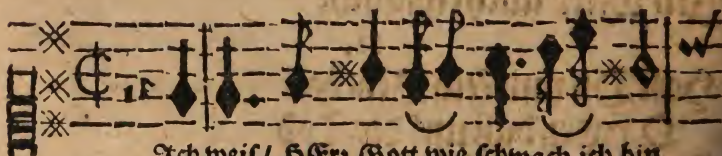 Ich weiß/ HErr Gott wie schwach ich bin